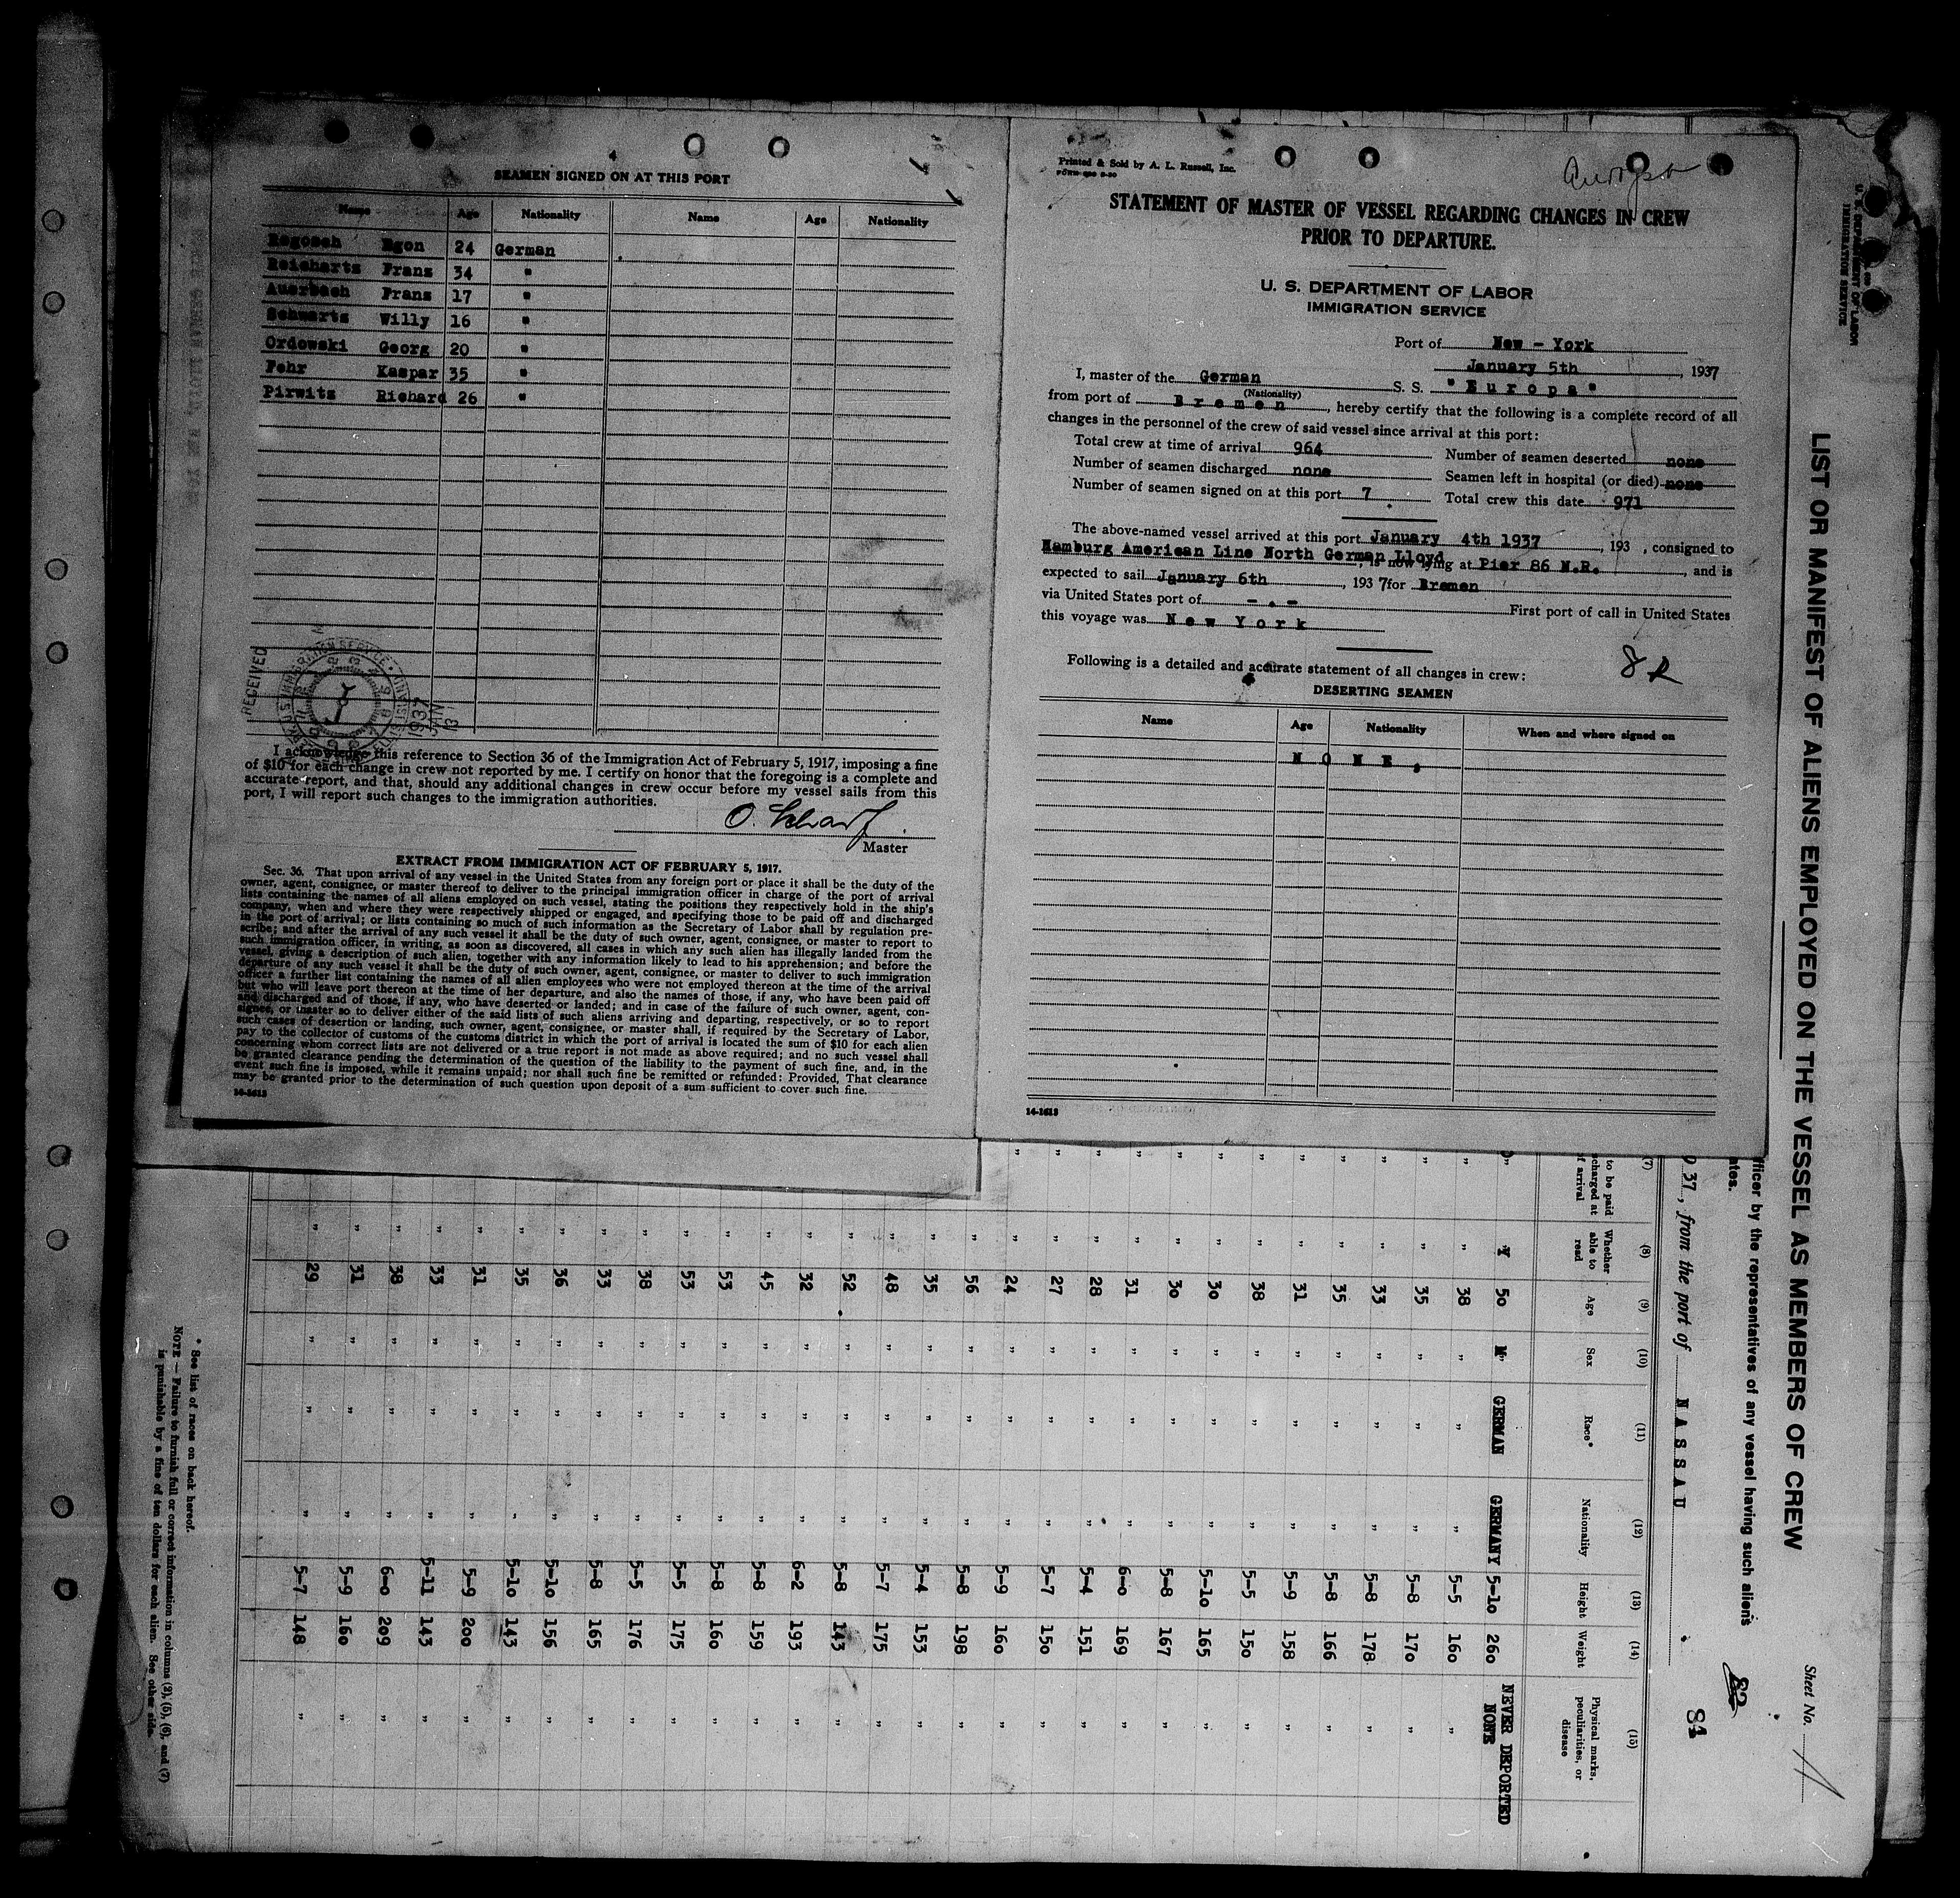 SEAMEN SIGNED ON AT THIS PORT
Name Age Nationality Name Age Nationality
Rogosch Egon 24 German
Reichartz Franz 34 "
Auerbach Franz 17 "
Schwartz Willy 16 "
Ordowski Georg 20 "
Fehr Kaspar 35 "
Pirwitz Richard 26 "
RECEIVED
I acknowledge this reference to Section 36 of the Immigration Act of February 5, 1917, imposing a fine
of $10 for each change in crew not reported by me. I certify on honor that the foregoing is a complete and
accurate report, and that, should any additional changes in crew occur before my vessel sails from this
port, I will report such changes to the immigration authorities.
O. Scharf
Master
EXTRACT FROM IMMIGRATION ACT OF FEBRUARY 5, 1917.
Sec. 36. That upon arrival of any vessel in the United States from any foreign port or place it shall be the duty of the
owner, agent, consignee, or master thereof to deliver to the principal immigration officer in charge of the port of arrival
lists containing the names of all aliens employed on such vessel, stating the positions they respectively hold in the ship's
company, when and where they were respectively shipped or engaged, and specifying those to be paid off and discharged
in the port of arrival; or lists containing so much of such information as the Secretary of Labor shall by regulation pre-
scribe; and after the arrival of any such vessel it shall be the duty of such owner, agent, consignee, or master to report to
such immigration officer, in writing, as soon as discovered, all cases in which any such alien has illegally landed from the
vessel, giving a description of such alien, together with any information likely to lead to his apprehension; and before the
departure of any such vessel it shall be the duty of such owner, agent, consignee, or master to deliver to such immigration
officer a further list containing the names of all alien employees who were not employed thereon at the time of the arrival
but who will leave port thereon at the time of her departure, and also the names of those, if any, who have been paid off
and discharged and of those, if any, who have deserted or landed; and in case of the failure of such owner, agent, con-
signee, or master so to deliver either of the said lists of such aliens arriving and departing, respectively, or so to report
such cases of desertion or landing, such owner, agent, consignee, or master shall, if required by the Secretary of Labor,
pay to the collector of customs of the customs district in which the port of arrival is located the sum of $10 for each alien
concerning whom correct lists are not delivered or a true report is not made as above required; and no such vessel shall
be granted clearance pending the determination of the question of the liability to the payment of such fine, and, in the
event such fine is imposed, while it remains unpaid; nor shall such fine be remitted or refunded: Provided, That clearance
may be granted prior to the determination of such question upon deposit of a sum sufficient to cover such fine.
14-1613
Printed & Sold by A. L. Russell, Inc.
Europa
STATEMENT OF MASTER OF VESSEL REGARDING CHANGES IN CREW
PRIOR TO DEPARTURE.
U. S. DEPARTMENT OF LABOR
IMMIGRATION SERVICE
Port of New - York
January 5th, 1937
I, master of the German S. S. "Europa"
(Nationality)
from port of Bremen, hereby certify that the following is a complete record of all
changes in the personnel of the crew of said vessel since arrival at this port:
Total crew at time of arrival 964 Number of seamen deserted none
Number of seamen discharged none Seamen left in hospital (or died) none
Number of seamen signed on at this port 7 Total crew this date 971
The above-named vessel arrived at this port January 4th 1937, 193 , consigned to
Hamburg American Line North German Lloyd, is now lying at Pier 86 N.R., and is
expected to sail January 6th, 1937 for Bremen
via United States port of -.- First port of call in United States
this voyage was New York
8 R
Following is a detailed and accurate statement of all changes in crew:
DESERTING SEAMEN
Name Age Nationality When and where signed on
NONE,
14-1613
U. S. DEPARTMENT OF LABOR
IMMIGRATION SERVICE
LIST OR MANIFEST OF ALIENS EMPLOYED ON THE VESSEL AS MEMBERS OF CREW
Sheet No. 1
fficer by the representatives of any vessel having such aliens
ates.
82
84
37, from the port of NASSAU
(7) (8) (9) (10) (11) (12) (13) (14) (15)
to be paid
charged at
f arrival
Whether able to read
Age
Sex
Race*
Nationality
Height
Weight
Physical marks, peculiarities, or disease
Y 50 M GERMAN GERMANY 5-10 260 NEVER DEPORTED NONE
" " 38 " " " 5-5 160 "
" " 35 " " " 5-8 170 "
" " 33 " " " 5-8 178 "
" " 35 " " " 5-8 166 "
" " 31 " " " 5-9 158 "
" " 38 " " " 5-5 150 "
" " 30 " " " 5-10 165 "
" " 30 " " " 5-8 167 "
" " 31 " " " 6-0 169 "
" " 28 " " " 5-4 151 "
" " 27 " " " 5-7 150 "
" " 24 " " " 5-9 160 "
" 56 " " " 5-8 198 "
" 35 " " " 5-4 153 "
" 48 " " " 5-7 175 "
" 52 " " " 5-8 143 "
" 32 " " " 6-2 193 "
" 45 " " " 5-8 159 "
" 53 " " " 5-8 160 "
" 53 " " " 5-5 175 "
" 38 " " " 5-5 176 "
" 33 " " " 5-8 165 "
" 36 " " " 5-10 156 "
" 35 " " " 5-10 143 "
" 31 " " " 5-9 200 "
" 33 " " " 5-11 143 "
" 38 " " " 6-0 209 "
" 31 " " " 5-9 160 "
" 29 " " " 5-7 148 "
* See list of races on back hereof.
NOTE — Failure to furnish full or correct information in columns (2), (5), (6), and (7)
is punishable by a fine of ten dollars for each alien. See other side.